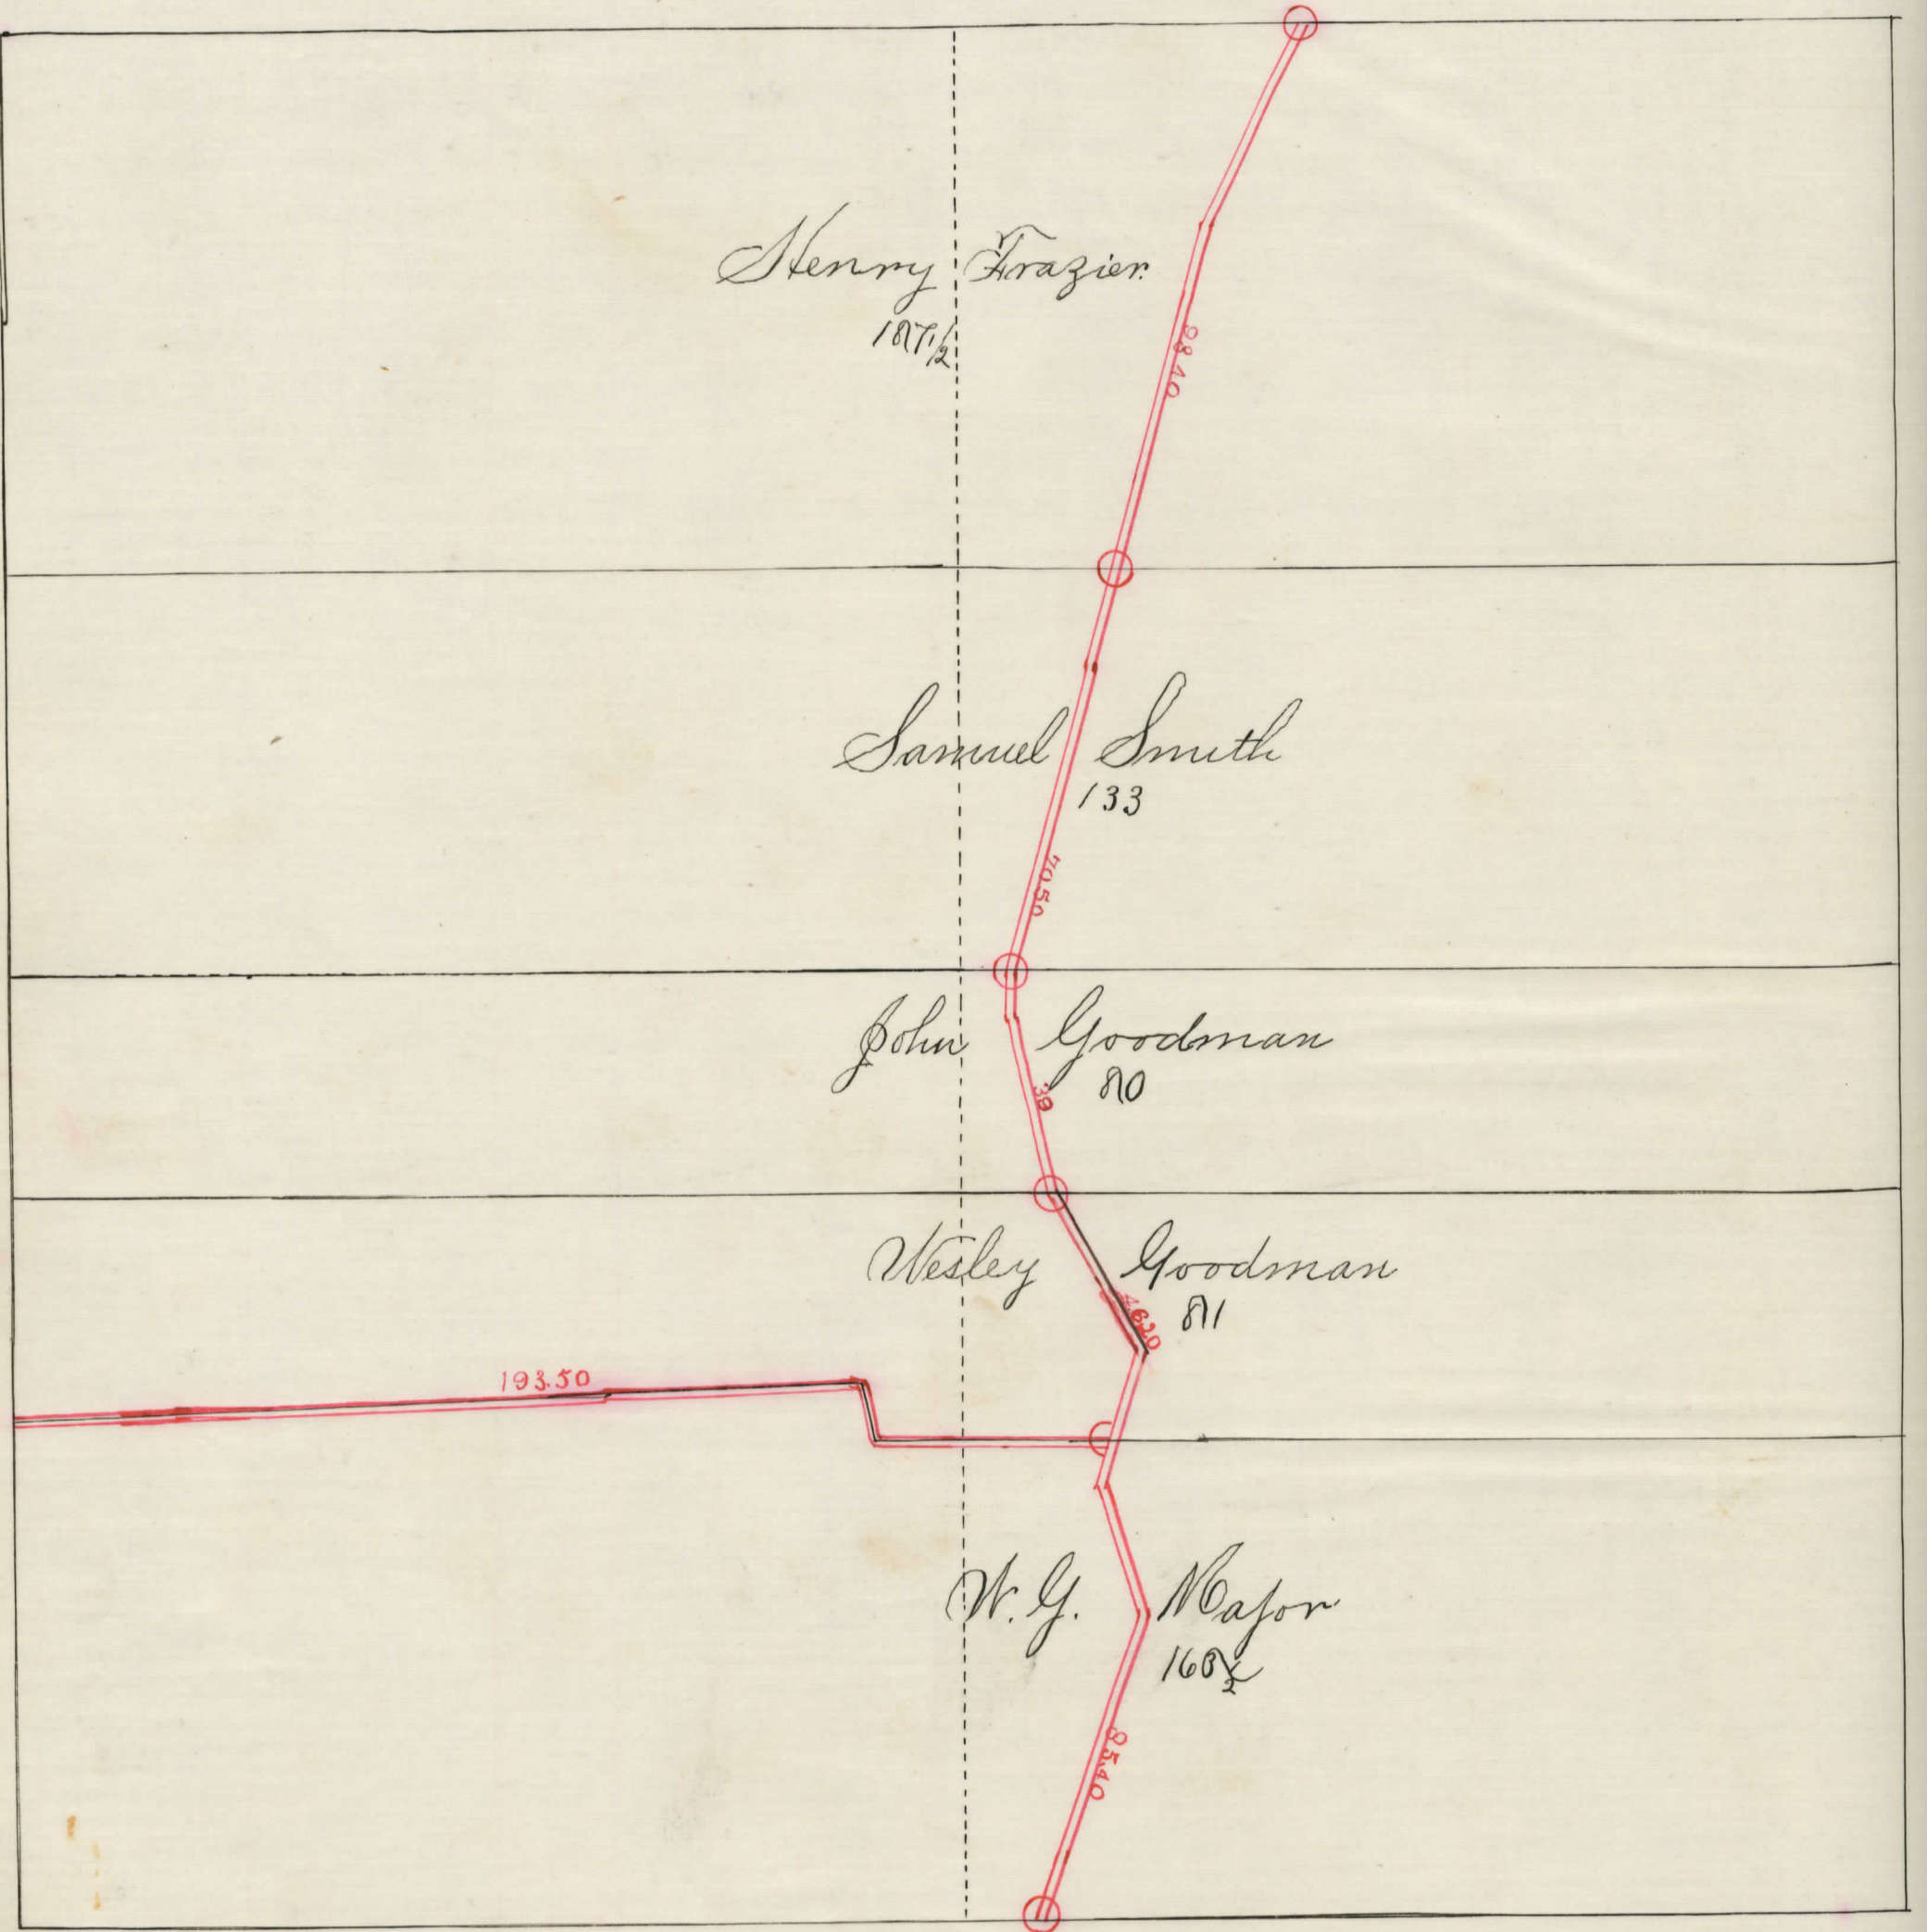 Henry Frazier
187 1/2
98.10
Samuel Smith
133
70.50
John Goodman
80
39
Wesley Goodman
81
46.20
193.50
W. G. Major
160 1/2